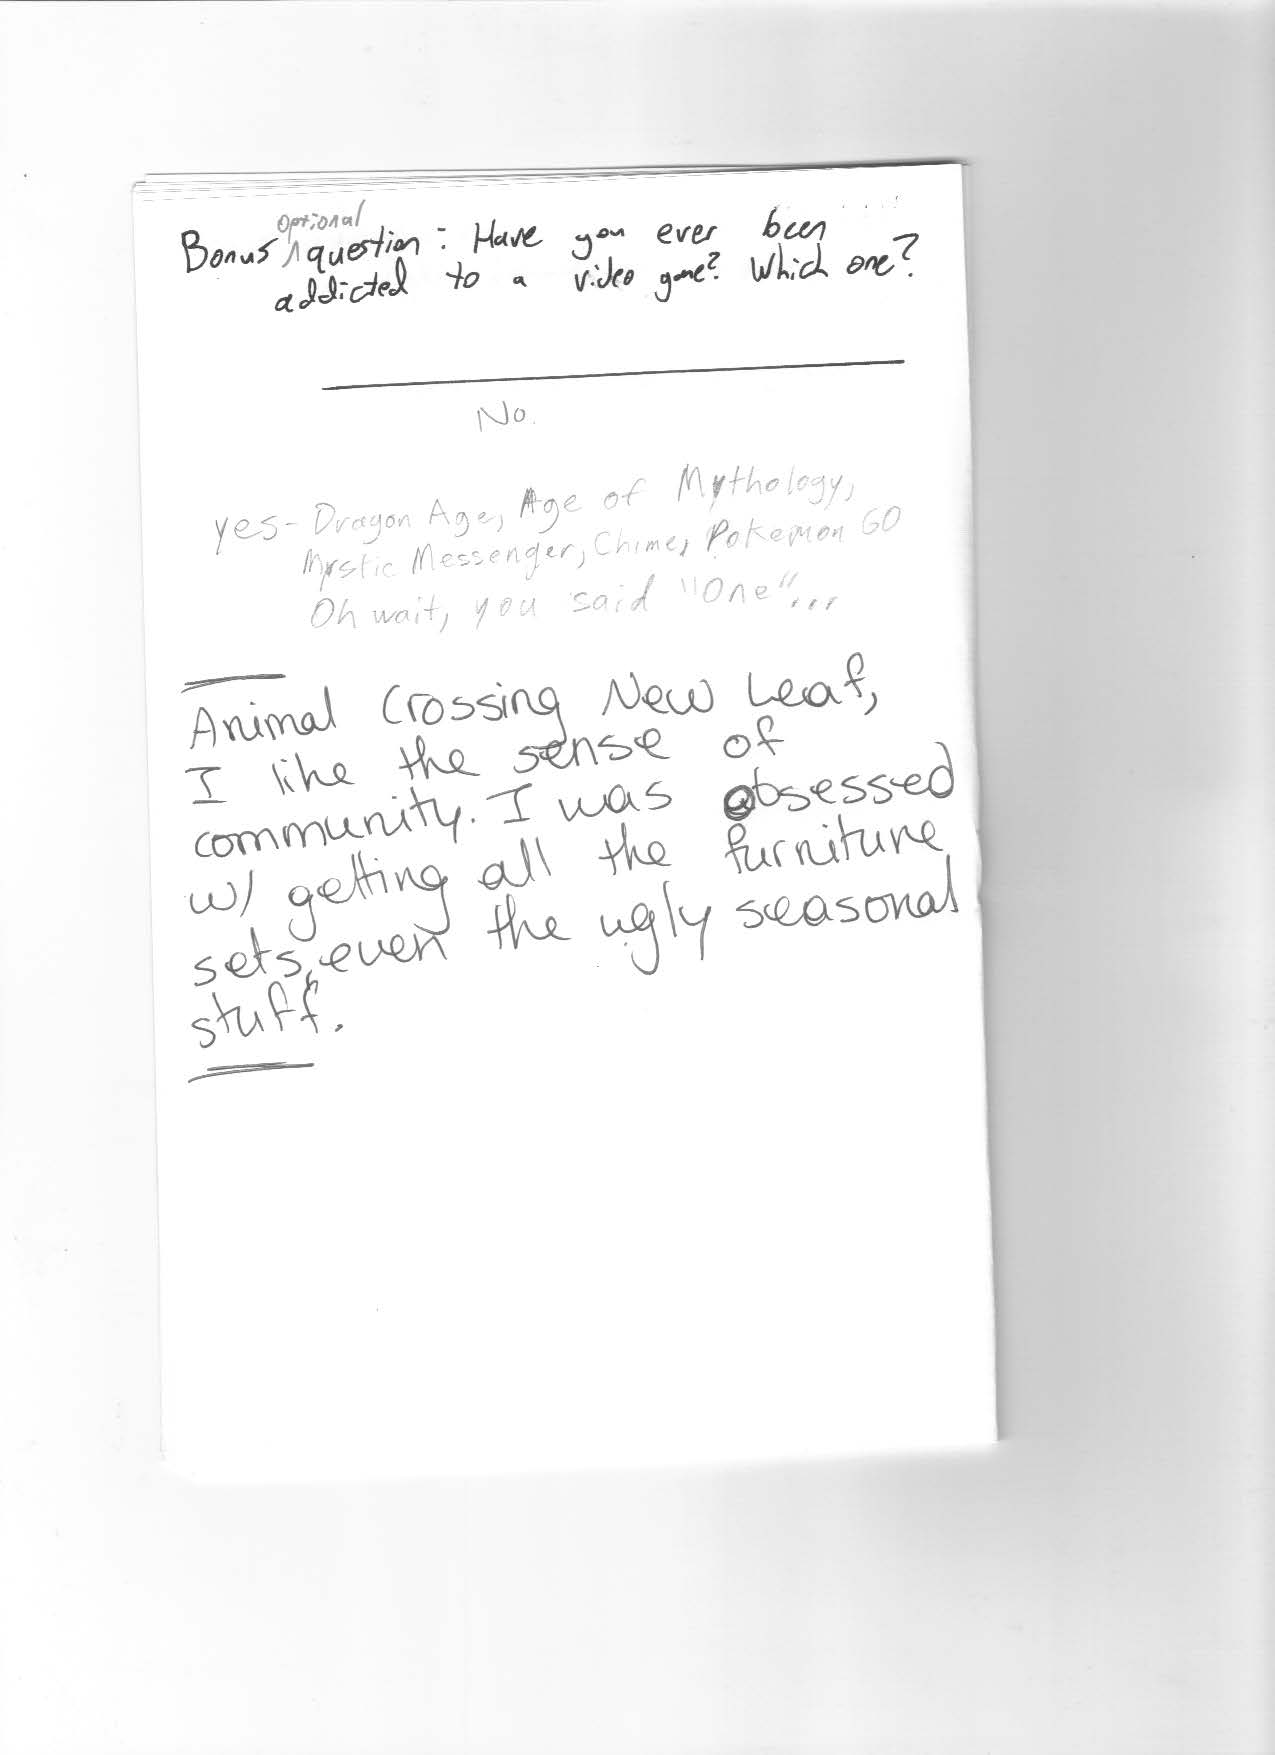 Bonus ^ optional question: Have you ever been
addicted to a video game? Which one?
No.
yes- Dragon Age, Age of Mythology,
Mystic Messenger, Chime, Pokemon GO
Oh wait, you said "One"...
Animal Crossing New Leaf,
I like the sense of
community. I was obsessed
w/ getting all the furniture
sets, even the ugly seasonal
stuff.